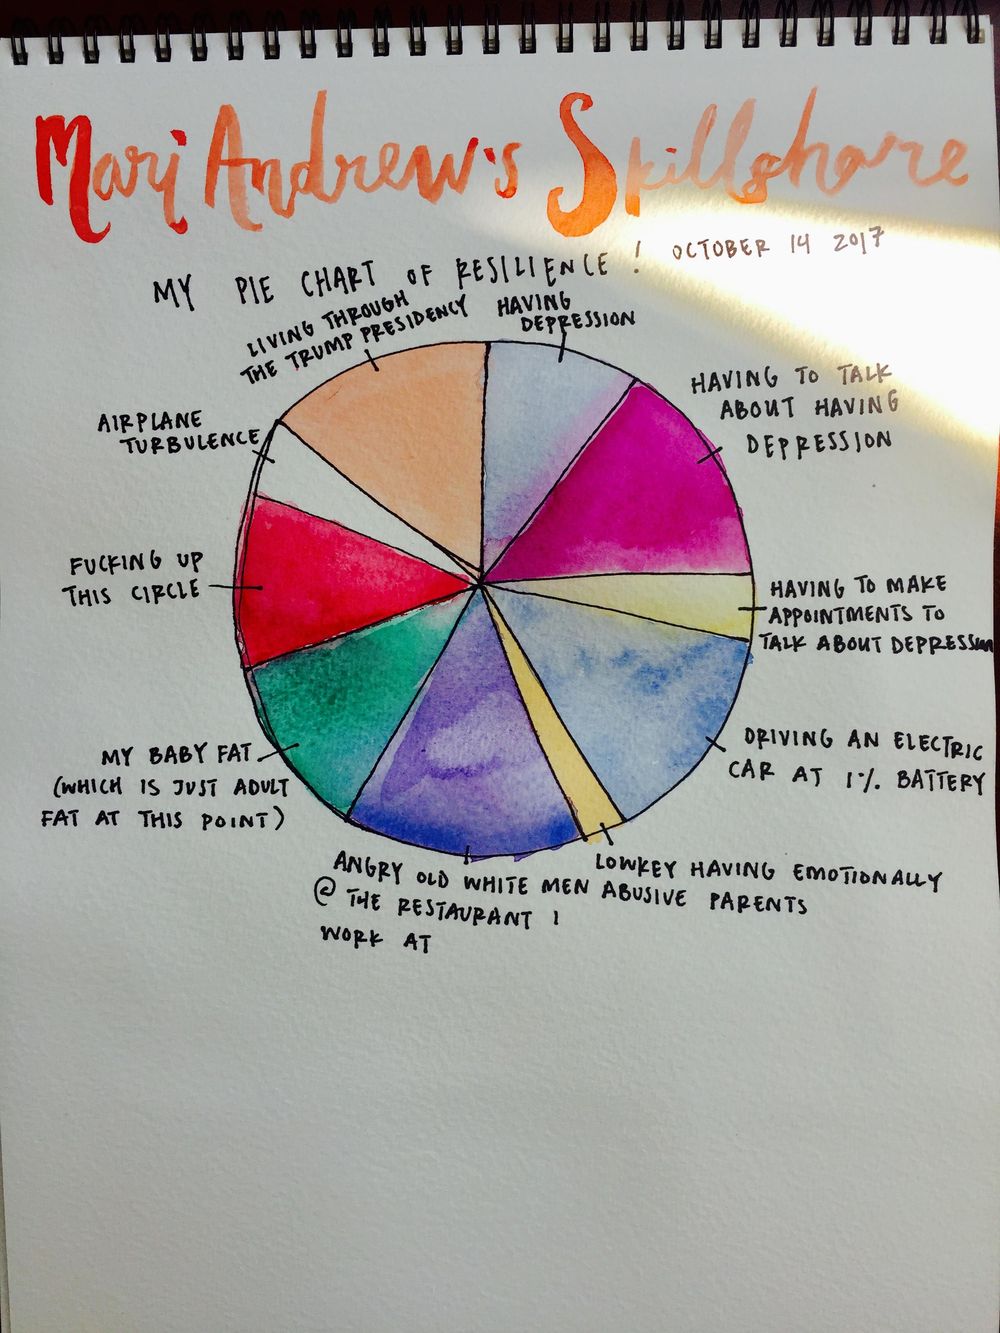 Mari Andrew's Skillshare
OCTOBER 14 2017
MY PIE CHART OF RESILIENCE!
LIVING THROUGH
THE TRUMP PRESIDENCY
HAVING
DEPRESSION
HAVING TO TALK
ABOUT HAVING
DEPRESSION
AIRPLANE
TURBULENCE
FUCKING UP
THIS CIRCLE
HAVING TO MAKE
APPOINTMENTS TO
TALK ABOUT DEPRESSION
DRIVING AN ELECTRIC
CAR AT 1% BATTERY
MY BABY FAT
(WHICH IS JUST ADULT
FAT AT THIS POINT)
LOWKEY HAVING EMOTIONALLY
ABUSIVE PARENTS
ANGRY OLD WHITE MEN
@ THE RESTAURANT I
WORK AT